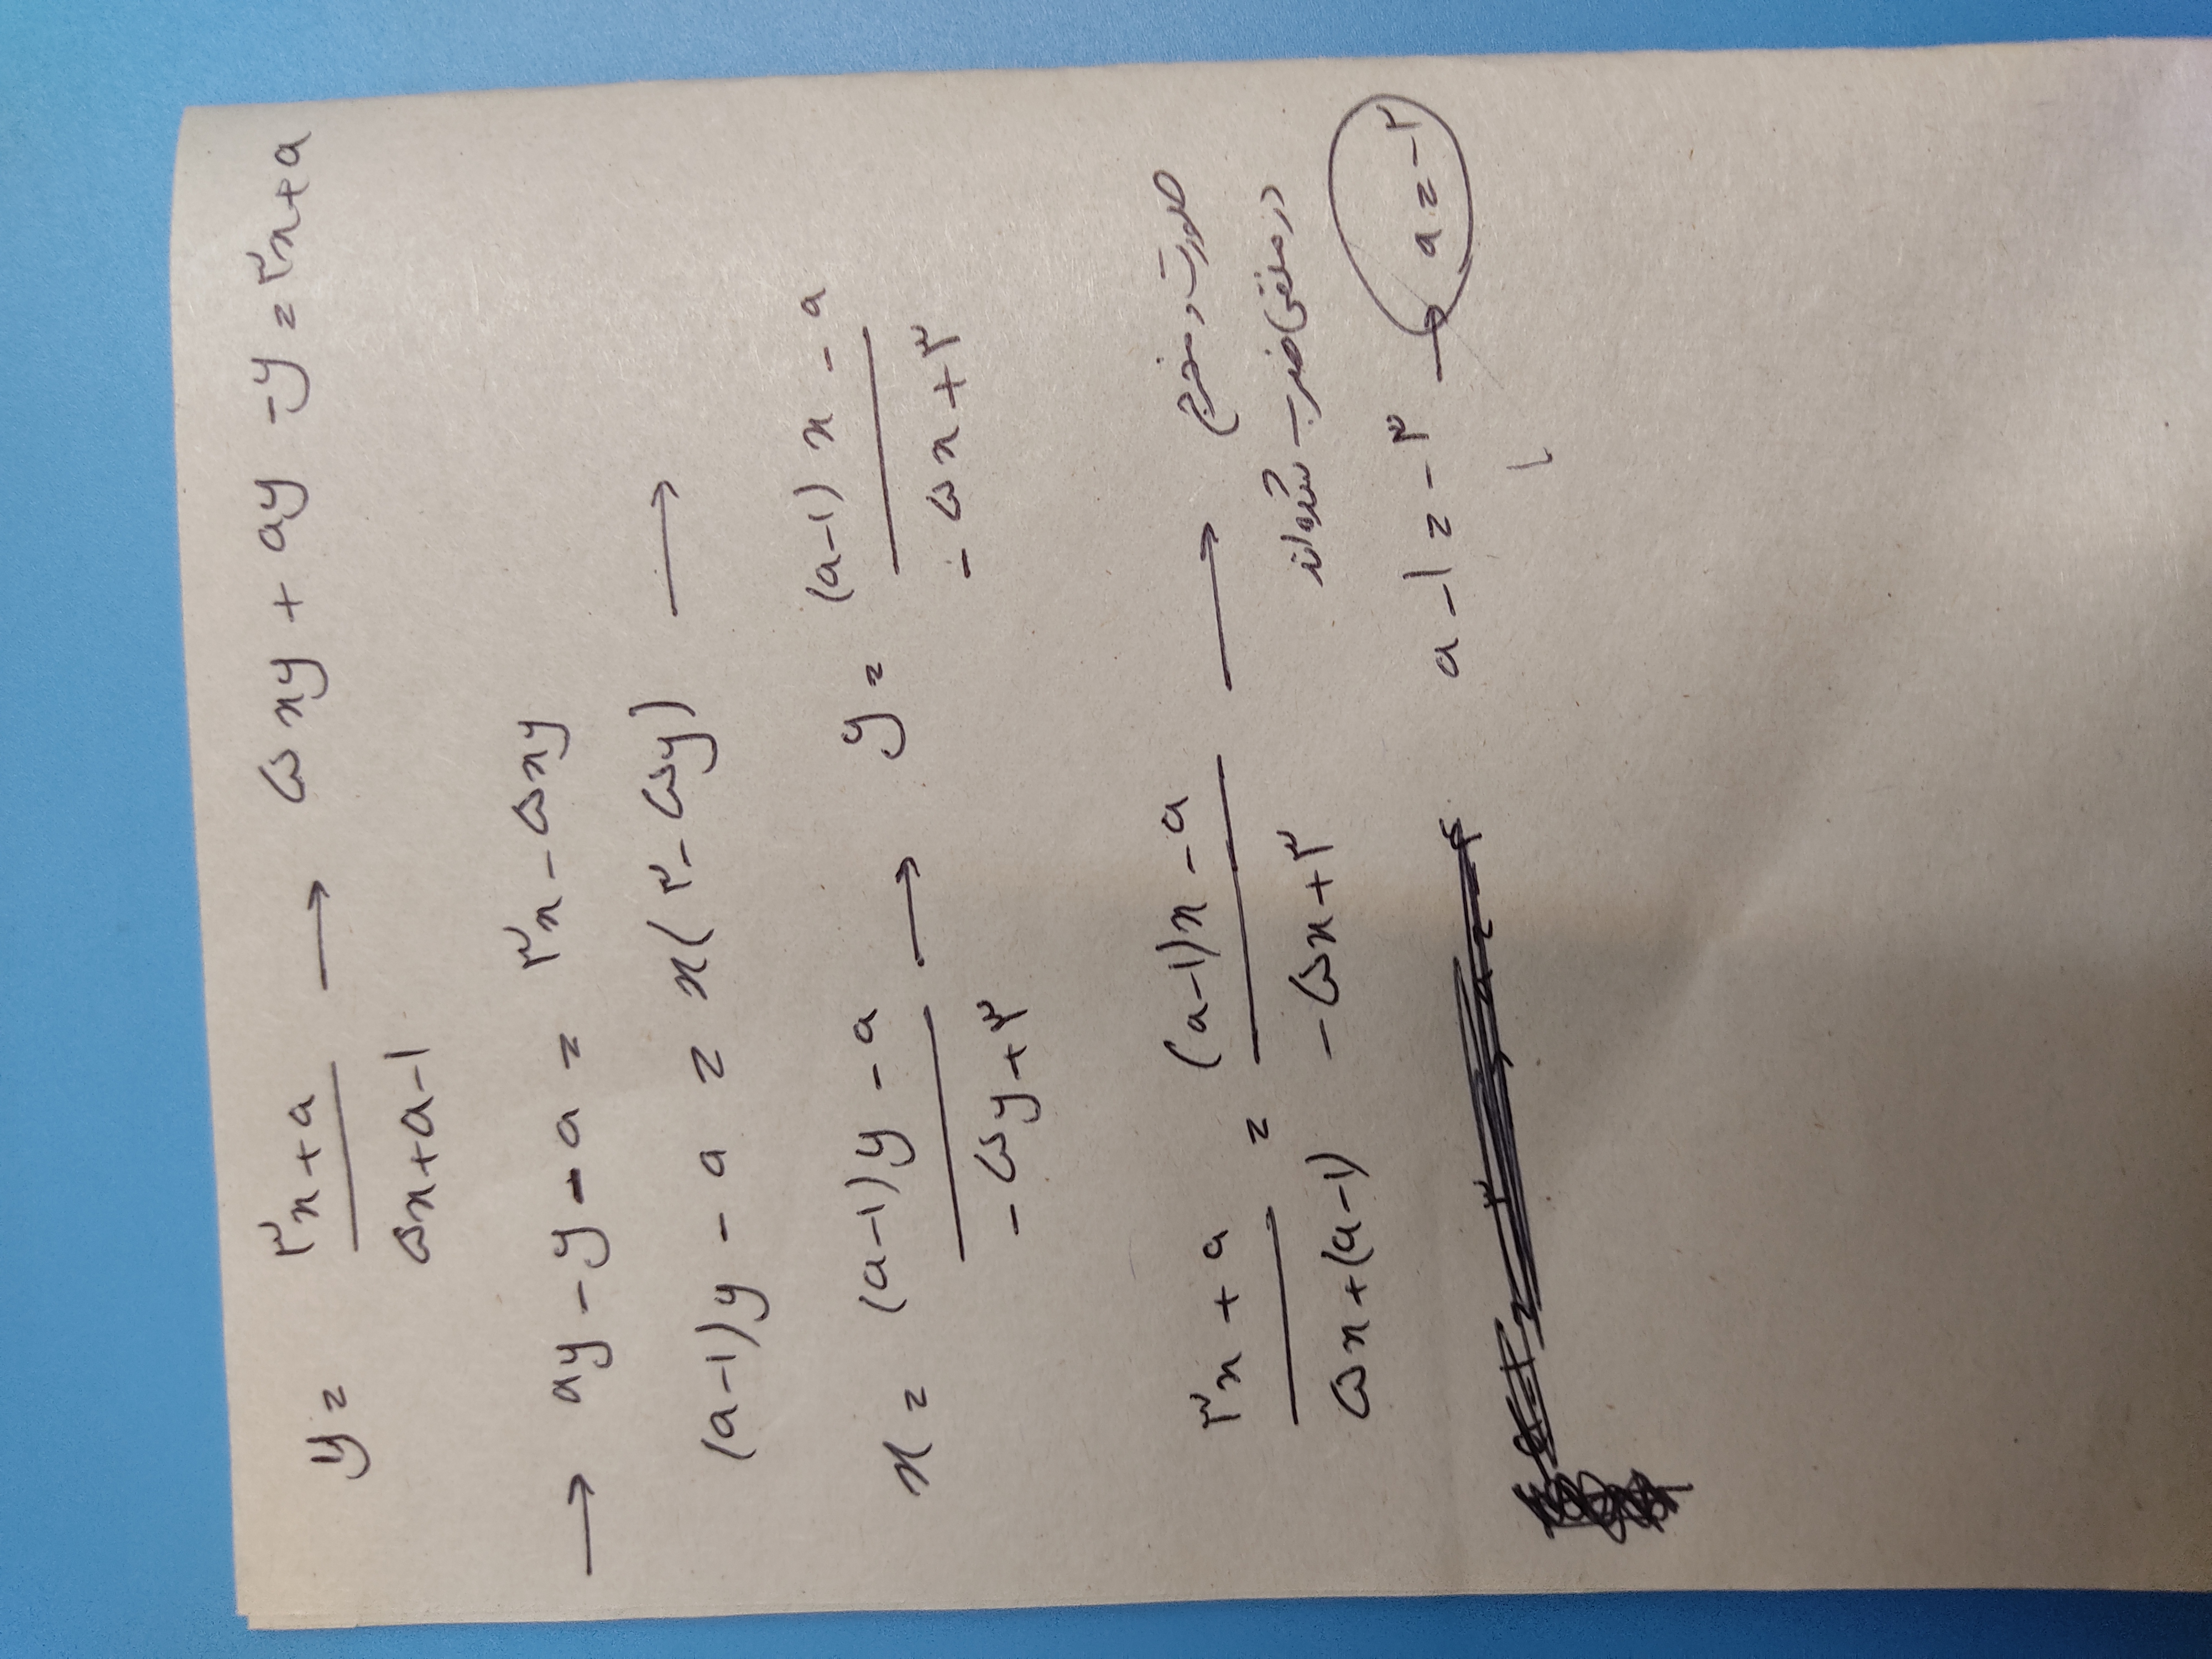 y = (۳x + a) / (۵x + a - ۱) → ۵xy + ay - y = ۳x + a
→ ay - y - a = ۳x - ۵xy
(a-۱)y - a = x(۳ - ۵y) →
x = ((a-۱)y - a) / (-۵y + ۳) → y = ((a-۱)x - a) / (-۵x + ۳)
(۳x + a) / (۵x + (a-۱)) = ((a-۱)x - a) / (-۵x + ۳) → صورت و مخرج
در منفی ضرب شده‌اند
a - ۱ = -۳ → a = -۲